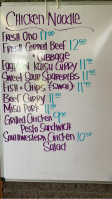 Chicken Noodle
Fresh Ono 17.95
Fresh Corned Beef 12.50
+ Cabbage
Eggplant Katsu Curry 11.95
Sweet Sour Spareribs 11.95
Fish & Chips (Swai) 11.95
Beef Curry 11
Miso Pork 11
Grilled Chicken
Pesto Sandwich
Southwestern Chicken 10.50
Salad